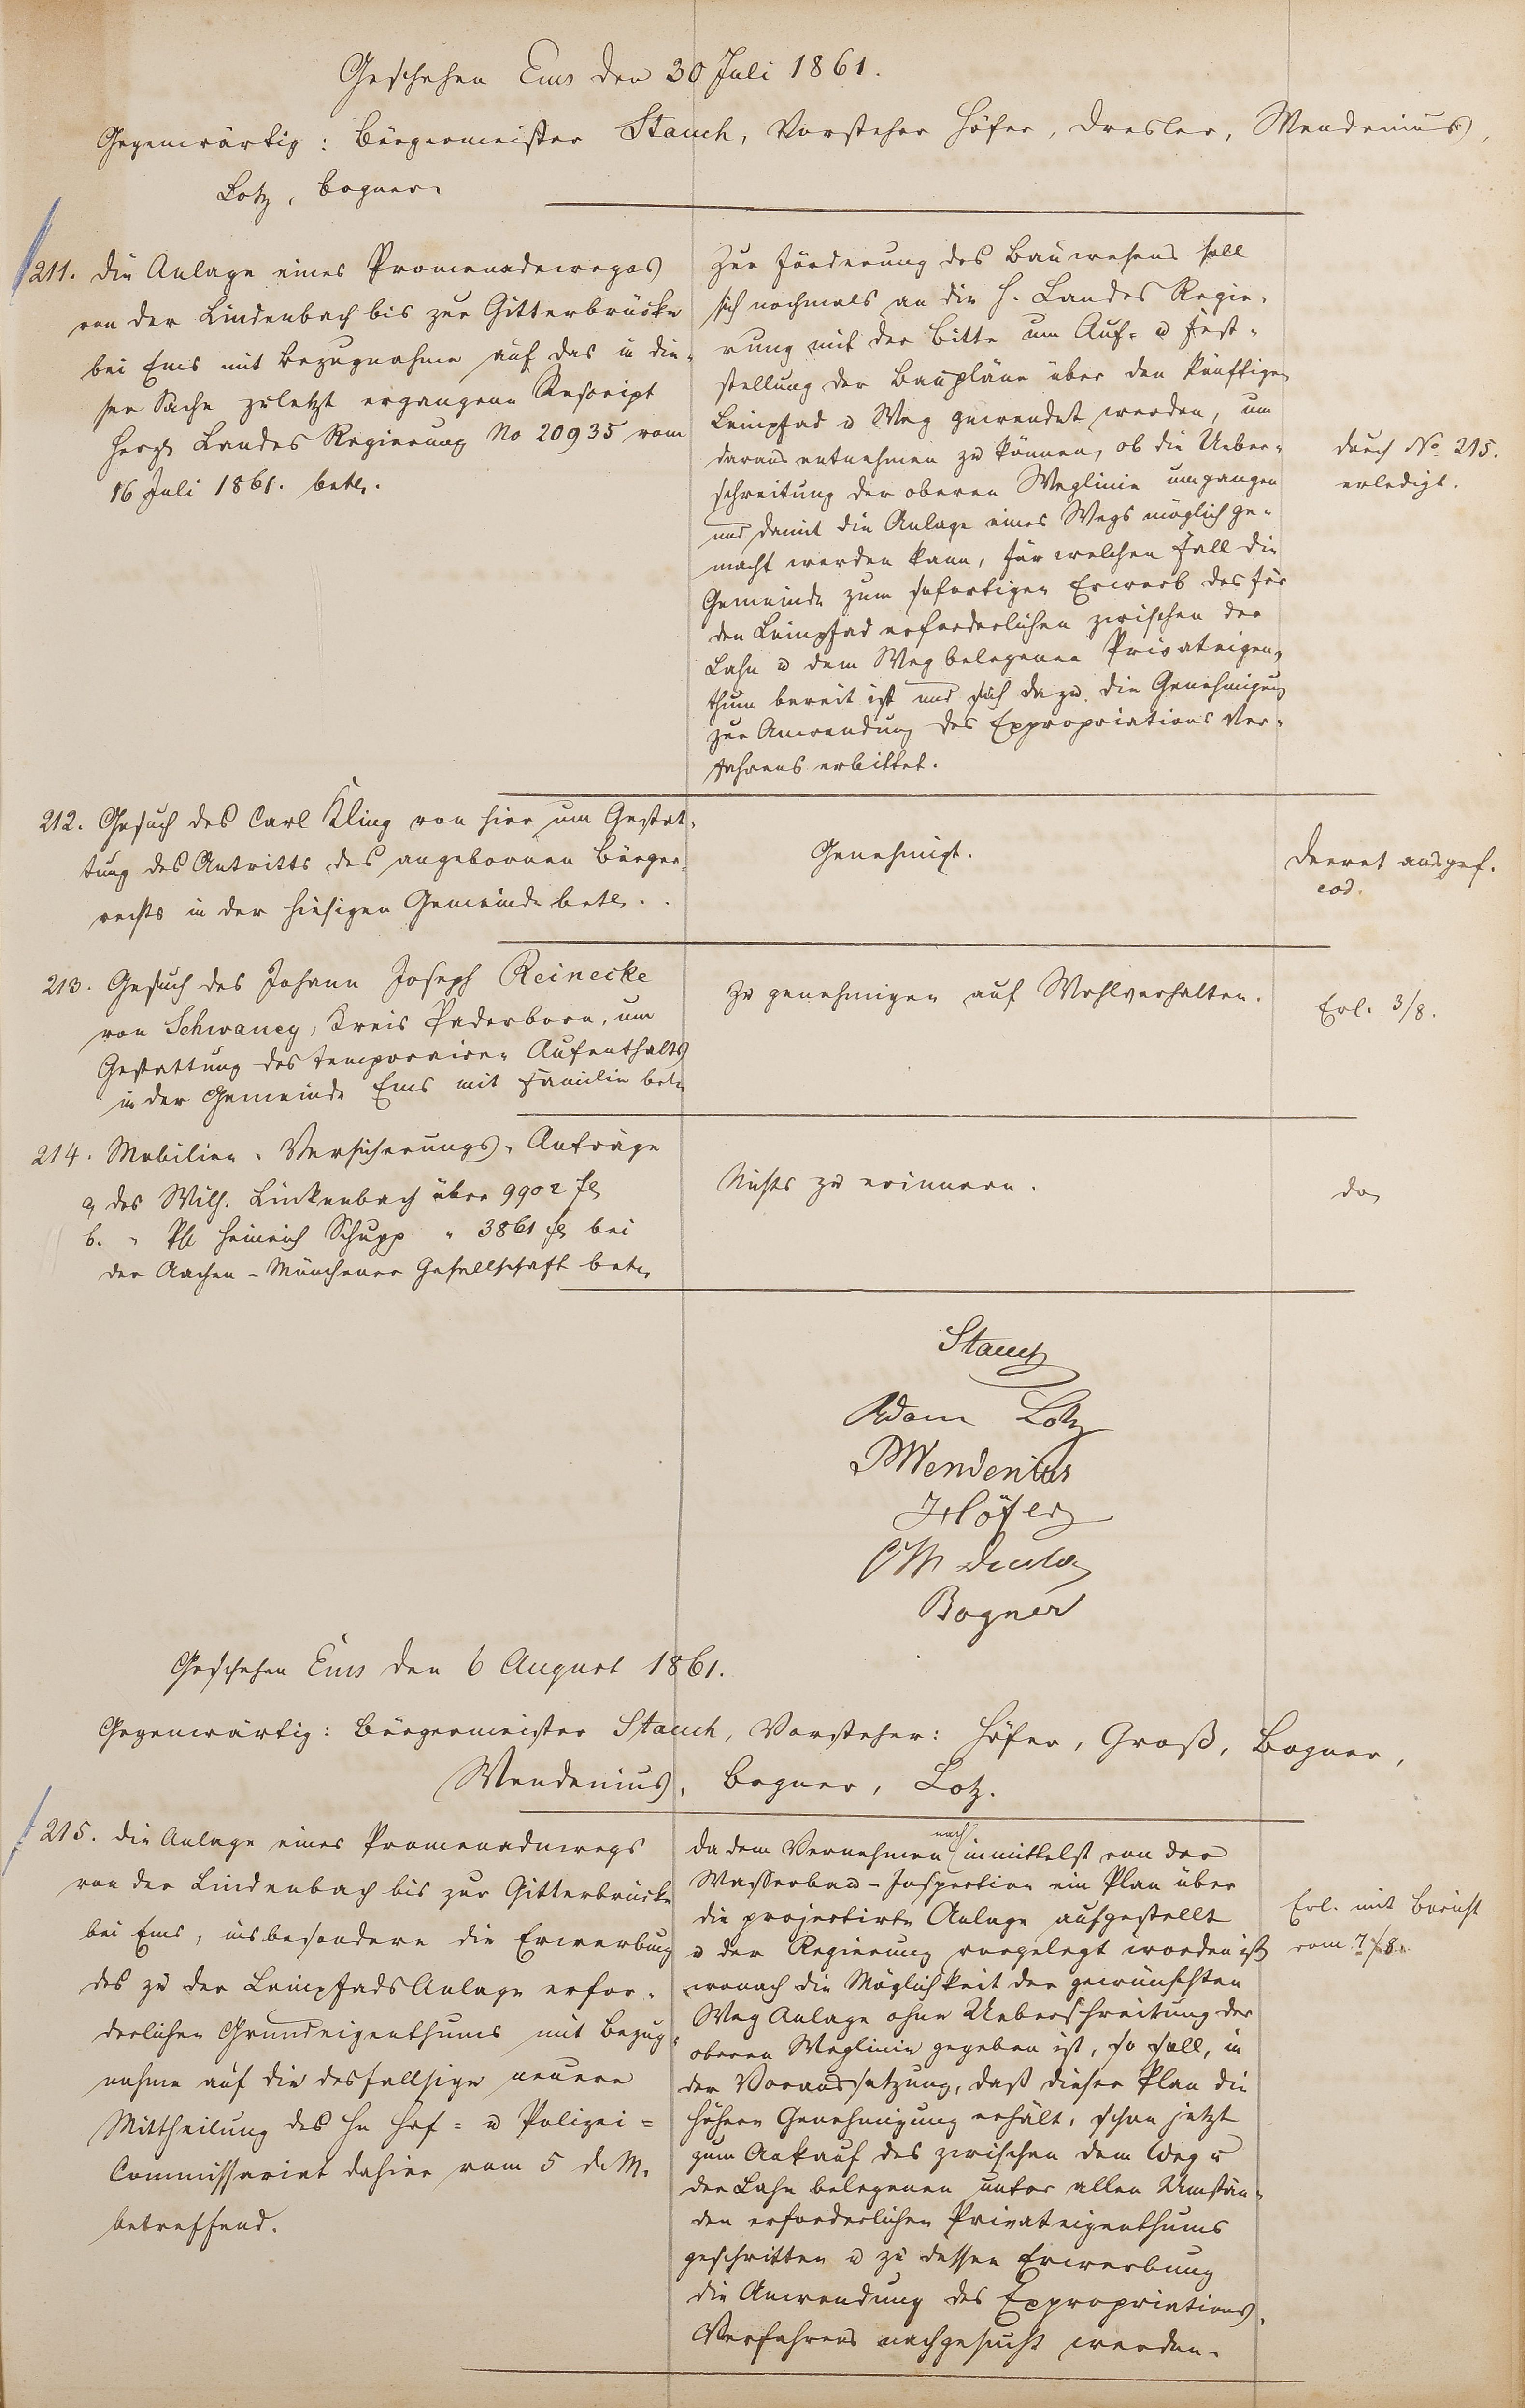 Geschehen Ems den 30 Juli 1861.
Gegenwärtig: Bürgermeister Stauch, Vorsteher Höfer, Dresler, Wendenius,
Lotz, Bogner.
211. Die Anlage eines Promenadeweges
von der Lindenbach bis zur Gitterbrücke
bei Ems mit Bezugnahme auf das in die-
ser Sache zuletzt ergangene Rescript
Herzl Landes Regierung No 20935 vom
16 Juli 1861. betr.
Zur Förderung des Bauwesens soll
sich nochmals an die H. Landes Regie-
rung mit der Bitte um Auf- u Fest-
stellung der Baupläne über den künftigen
Leinpfad u Weg gewendet werden, um
daraus entnehmen zu können, ob die Ueber-
schreitung der oberen Weglinie umgangen
und damit die Anlage eines Wegs möglich ge-
macht werden kann, für welchen Fall die
Gemeinde zum sofortigen Erwerb des für
den Leinpfad erforderlichen zwischen der
Lahn u dem Weg belegenen Privateigen-
thum bereit ist und sich dazu die Genehmigung
zur Anwendung des Expropriations Ver-
fahrens erbittet.
durch No. 215.
erledigt.
212. Gesuch des Carl Kling von hier um Gestat-
tung des Antritts des angebornen Bürger-
rechts in der hiesigen Gemeinde betr.
Genehmigt.
Decret ausgef.
eod.
213. Gesuch des Johann Joseph Reinecke
von Schwaney, Kreis Paderborn, um
Gestattung des temporairen Aufenthalts
in der Gemeinde Ems mit Familie betr.
Zu genehmigen auf Wohlverhalten.
Erl. 3/8.
214. Mobilien-Versicherungs-Anträge
a, des Wilh. Linkenbach über 9902 fl
b. " Ph Heinrich Schupp " 3861 fl bei
der Aachen-Münchener Gesellschaft betr.
Nichts zu erinnern.
do
Stauch
Adam Lotz
Wendenius
Höfer
Dresler
Bogner
Geschehen Ems den 6 August 1861.
Gegenwärtig: Bürgermeister Stauch, Vorsteher: Höfer, Groß, Bogner,
Wendenius, Bogner, Lotz.
215. Die Anlage eines Promenadewegs
von der Lindenbach bis zur Gitterbrücke
bei Ems, insbesondere die Erwerbung
des zu der Leinpfads Anlage erfor-
derlichen Grundeigenthums mit Bezug-
nahme auf die desfallsige neuere
Mittheilung des Hn Hof- u Polizei-
Commissariat dahier vom 5 d. M.
betreffend.
Da dem Vernehmen nach inmittelst von der
Wasserbau-Inspection ein Plan über
die projectirte Anlage aufgestellt
u der Regierung vorgelegt worden ist
wonach die Möglichkeit der gewünschten
Weg Anlage ohne Ueberschreitung der
oberen Weglinie gegeben ist, so soll, in
der Voraussetzung, daß dieser Plan die
höhere Genehmigung erhält, schon jetzt
zum Ankauf des zwischen dem Weg u
der Lahn belegenen unter allen Umstän-
den erforderlichen Privateigenthums
geschritten u zu dessen Erwerbung
die Anwendung des Expropriations-
Verfahrens nachgesucht werden.
Erl. mit Bericht
vom 7/8.